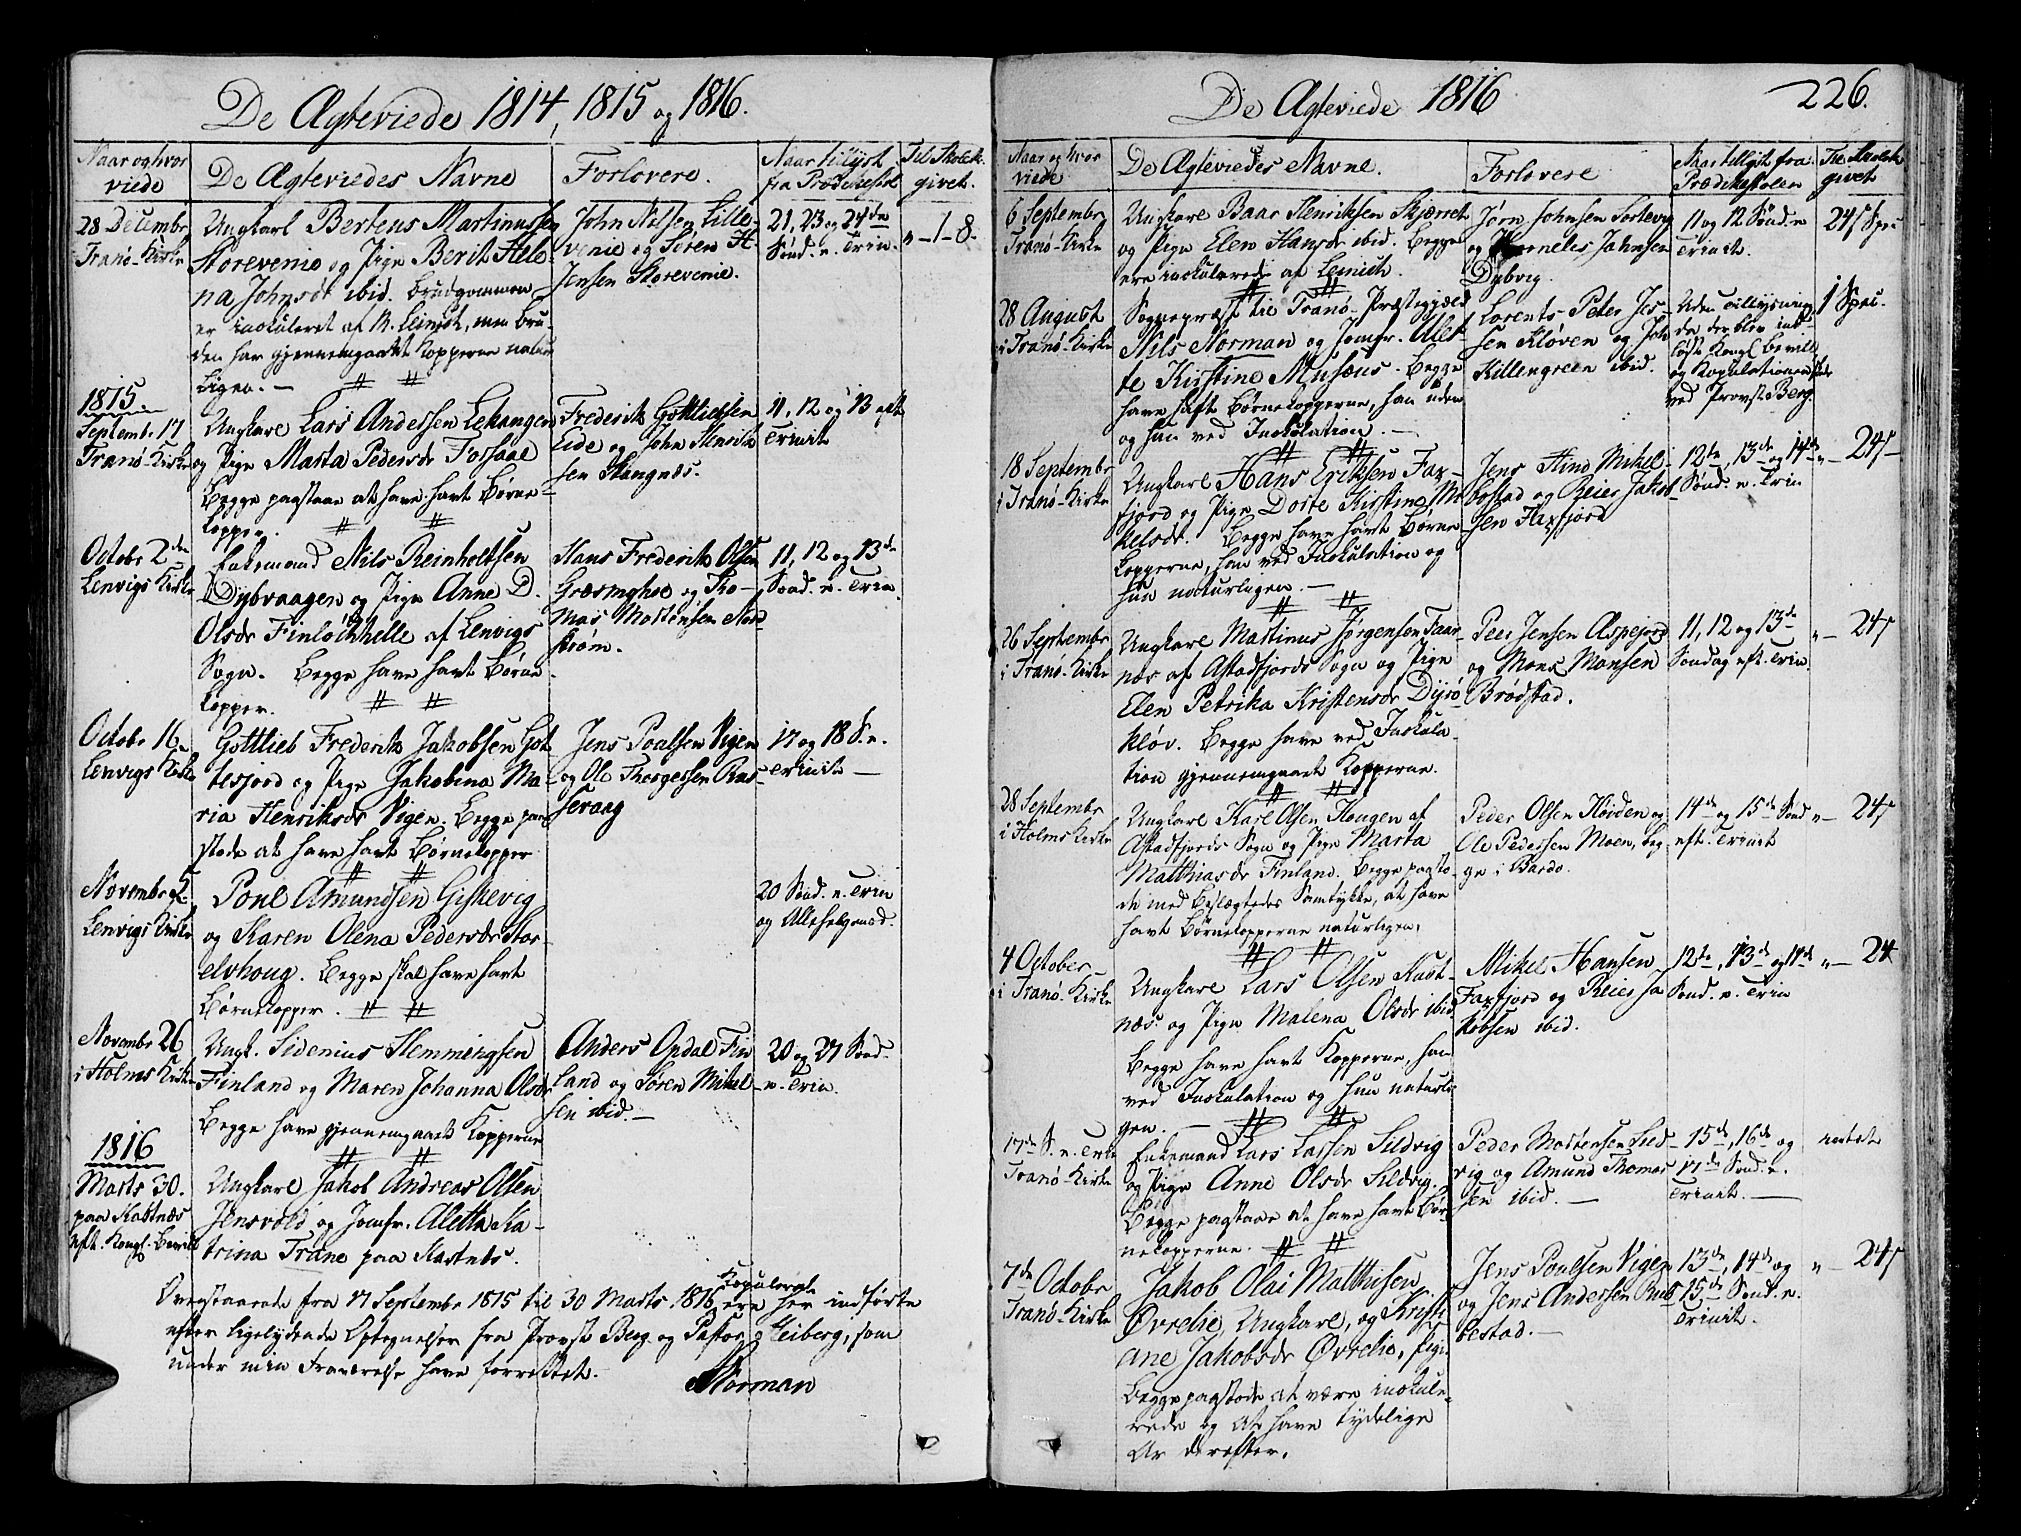 De Ægteviede 1814, 1815 og 1816.
Naar og hvor viede
De Ægteviedes Navne
Forlovere.
Naar tillyst fra Prædikestol
Til Skolek. givet.
28 Decembr
Tranø-Kirke
Ungkarl Bertens Martinussen
Storevenie og Pige Berit Hele-
na Johnsdr ibid. Brudgommen
er inokuleret af N. Leinich, men Bru-
den har gjennemgaaet Kopperne natur-
ligen. —
John Nilsen Lille-
venie og Sören H.
Jensen Storevenie.
21, 23 og 24de
Sönd. n. Trin.
" – 1 – 8.
1815.
Septemb. 17
Tranö-Kirke
Ungkarl Lars Anderssen Lekangen
og Pige Marta Pedersdr Forsaae
Begge paastaae at have havt Börne-
kopper.
Frederik Gottliebsen
Eide og John Henrik-
sen Stangnæs.
11, 12 og 13 eft
Trinit.
Octobr 2den
Lenvigs Kirke
Enkemand Nils Reinholtsen
Dybvaagen og Pige Anne D.
Olsdr Finlökhelle af Lenvigs
Sogn. Begge have havt Börne-
kopper.
Hans Frederik Olsen
Græsmyhre og Tho-
mas Mortensen Nord-
ström.
11, 12 og 13de
Sönd. n. Trin.
Octobr 16
Lenvigs Kirke
Gottlieb Frederik Jakobsen Got-
tesjord og Pige Jakobina Ma-
ria Henriksdr Vigen. Begge paa-
stode at have havt Börnekopper
Jens Poalsen Vigen
og Ole Thorgersen Ros-
sevaag
17 og 18 S. n.
Trinit —
Novembr 2.
Lenvigs Kirke
Poul Amundsen Giskevig
og Karen Olena Pedersdr Stor-
elvhoug. Begge skal have havt
Börnekopper.
20 Sönd. n. Trin
og Allehelgensd.
Novembr 26
i Holms Kirke
Ungk. Sidenius Hemmingsen
Finland og Maren Johanna Olsdr
Begge have gjennemgaaet Kopperne
Anders Opdal Fin-
land og Sören Mikel-
sen ibid. —
20 og 21 Sönd.
n. Trin.
1816
Marts 30.
paa Kastnæs
eft. Kongl. Bevill
Ungkarl Jakob Andreas Olsen
Jensvold og Jomfr. Aletta Ka-
trina Trane paa Kastnæs.
Kopulerede
Ovenstaaende fra 17 Septembr 1815 til 30 Marts 1816 ere her indförte
efter ligelydende Optegnelser fra Provst Berg og Pastor Heiberg, som
under min Fraværelse have forrettet.
Norman
De Ægteviede 1816
226.
Naar og hvor viede
De Ægteviedes Navne.
Forlovere
Naar tillyst fra Prædikestolen
Til Skolek givet
6 Septembr
Tranö-Kirke
Ungkarl Baar Henriksen Skjærret
og Pige Elen Hansdr ibid. Begge
ere inokulerede af Leinich.
Jörn Johnsen Sörlevig
og Korneles Johnsen
Dybvig.
11 og 12 Sönd. n
Trinit.
24 s Spec
28 August
i Tranö-Kirke
Sognepræst til Tranö-Præstegjæld
Nils Norman og Jomfr. Alet-
te Kirstine Musæus. Begge
have havt Börnekopperne, han uden
og hun ved Inokulation. —
Lorents Peter Jes-
sen Klöven og Joh
Killengreen ibid.
Uden Tillysning
da der blev ind-
löst Kongl Bevill
og Kopulationen skede
ved Provst Berg.
1 Spec.
18 Septembr
i Tranö-Kirke
Ungkarl Hans Eriksen Fax-
fjord og Pige Dorte Kirstine Mi-
kelsdr. Begge have havt Börne-
kopperne, han ved Inokulation og
hun naturligen. —
Jens Hind Mikel-
bostad og Reier Jakob-
sen Faxfjord
12te, 13de og 14de
Sönd. n. Trin
" – 24 s
26 Septembr
i Tranö-Kirke
Ungkarl Martinus Jörgensen Faar-
næs af Astafjords Sogn og Pige
Elen Petrika Kristensdr Dyrö-
klöv. Begge have ved Inokula-
tion gjennemgaaet Kopperne.
Peer Jensen Aspejord
og Mons Monsen
Brödstad.
11, 12 og 13de
Söndag eft. Trin.
" – 24 s
28 Septembr
i Holms Kirke
Ungkarl Karl Olsen Hougen af
Astafjords Sogn og Pige Marta
Matthiasdr Finland. Begge paasto-
de med Beslægtedes Samtykke, at have
havt Börnekopperne naturligen.
Peder Olsen Höiden og
Ole Pedersen Moen, beg-
ge i Bardo.
14de og 15de Sönd
eft. Trinit
" – 24 s
4 October
i Tranö-Kirke
Ungkarl Lars Olsen Kast-
næs og Pige Malena Olsdr ibid
Begge have havt Kopperne, han
ved Inokulation og hun naturli-
gen. —
Mikel Hansen
Faxfjord og Reier Ja-
kobsen ibid.
12te, 13de og 14de
Sönd. n. Trin
" – 24
17de S. n. Trin
Tranö-Kirke
Enkemand Lars Larsen Sildvig
og Pige Anne Olsdr Sildvig.
Begge paastaae at have havt Bör-
nekopperne.
Peder Mortensen Sild-
vig og Amund Thomes-
sen ibid. —
15de, 16de og
17de Sönd. n.
Trinit. —
intet
7de Octobr
Tranö-Kirke
Jakob Olai Matthisen
Øvrelie, Ungkarl, og Kristi-
ane Jakobsdr Øvrelie, Pige
Begge paastode at være inokule-
rede og at have tydelige
Ar derefter.
Jens Poulsen Vigen
og Jens Andersen Rub-
bestad. —
13de, 14de og
15de Sönd. n.
Trinit.
" – 24 s